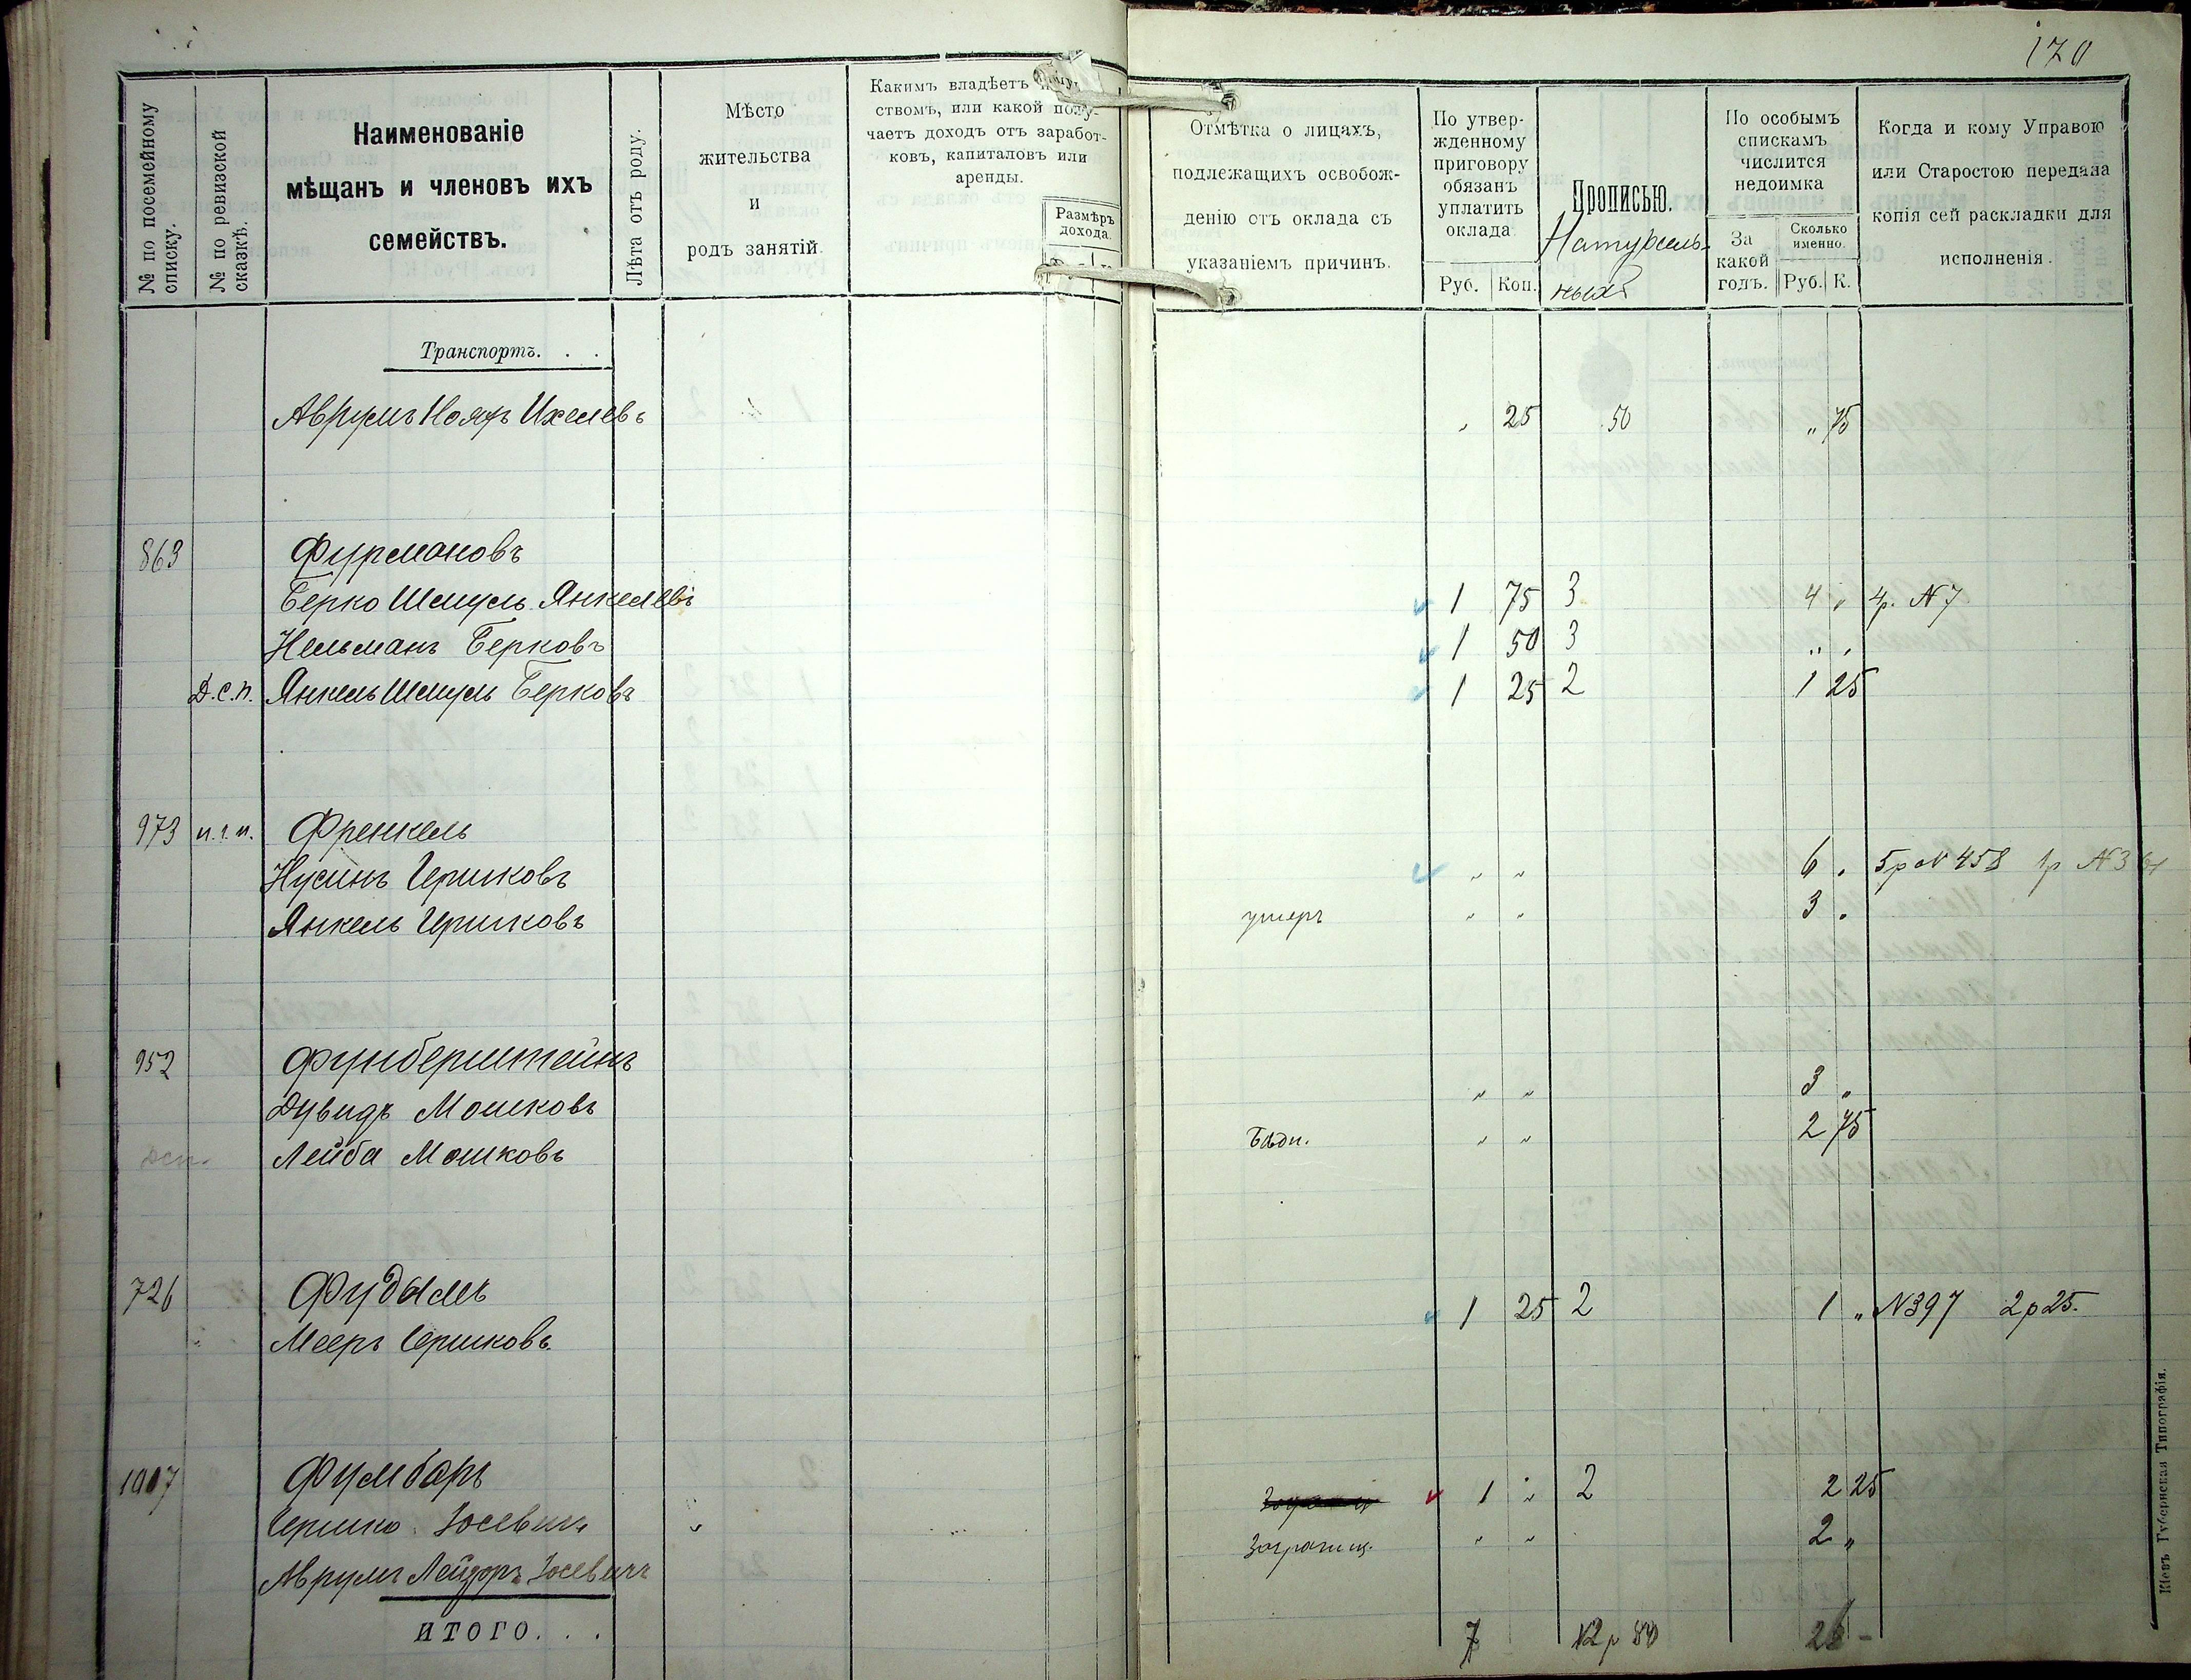 170
№ по посемейному списку.
№ по ревизской сказкѣ.
Наименованіе
мѣщанъ и членовъ ихъ
семействъ.
Лѣта отъ роду.
Мѣсто
жительства
и
родъ занятій.
Какимъ владѣетъ
ствомъ, или какой полу-
чаетъ доходъ отъ заработ-
ковъ, капиталовъ или
аренды.
Размѣръ
дохода.
Отмѣтка о лицахъ,
подлежащихъ освобож-
денію отъ оклада съ
указаніемъ причинъ.
По утвер-
жденному
приговору
обязанъ
уплатить
оклада
Руб. Коп.
Прописью.
Натураль-
ный
По особымъ
спискамъ
числится
недоимка
За
какой
годъ.
Сколько
именно.
Руб. К.
Когда и кому Управою
или Старостою передана
копія сей раскладки для
исполненія.
Транспортъ. . .
Аврумъ Ихелевъ " 25 50 " 75
863 Фурмановъ
Берко Шмуль Янкелевъ 1 75 3 4 " 4р. № 7
Нельманъ Берковъ 1 50 3 " "
Д.С.П. Янкель Шмуль Берковъ 1 25 2 1 25
973 Френкель
Нусинъ Гершковъ " " 6 " 5р № 458 1р
Янкель Гершковъ умеръ " " 3 "
952 Фунберштейнъ
Дувидъ Мошковъ " " 3 "
Лейба Мошковъ Бѣдн. " " 2 75
726 Фудымъ
Мееръ Гершковъ. 1 25 2 1 " №397 2р25.
1007 Фумбаръ
Гершко Іосевичъ 1 " 2 2 25
Аврумъ Лейзоръ Іосевичъ Заграниц. " " 2 "
ИТОГО. . . 7 12р 50 26 -
Кіевъ Губернская Типографія.